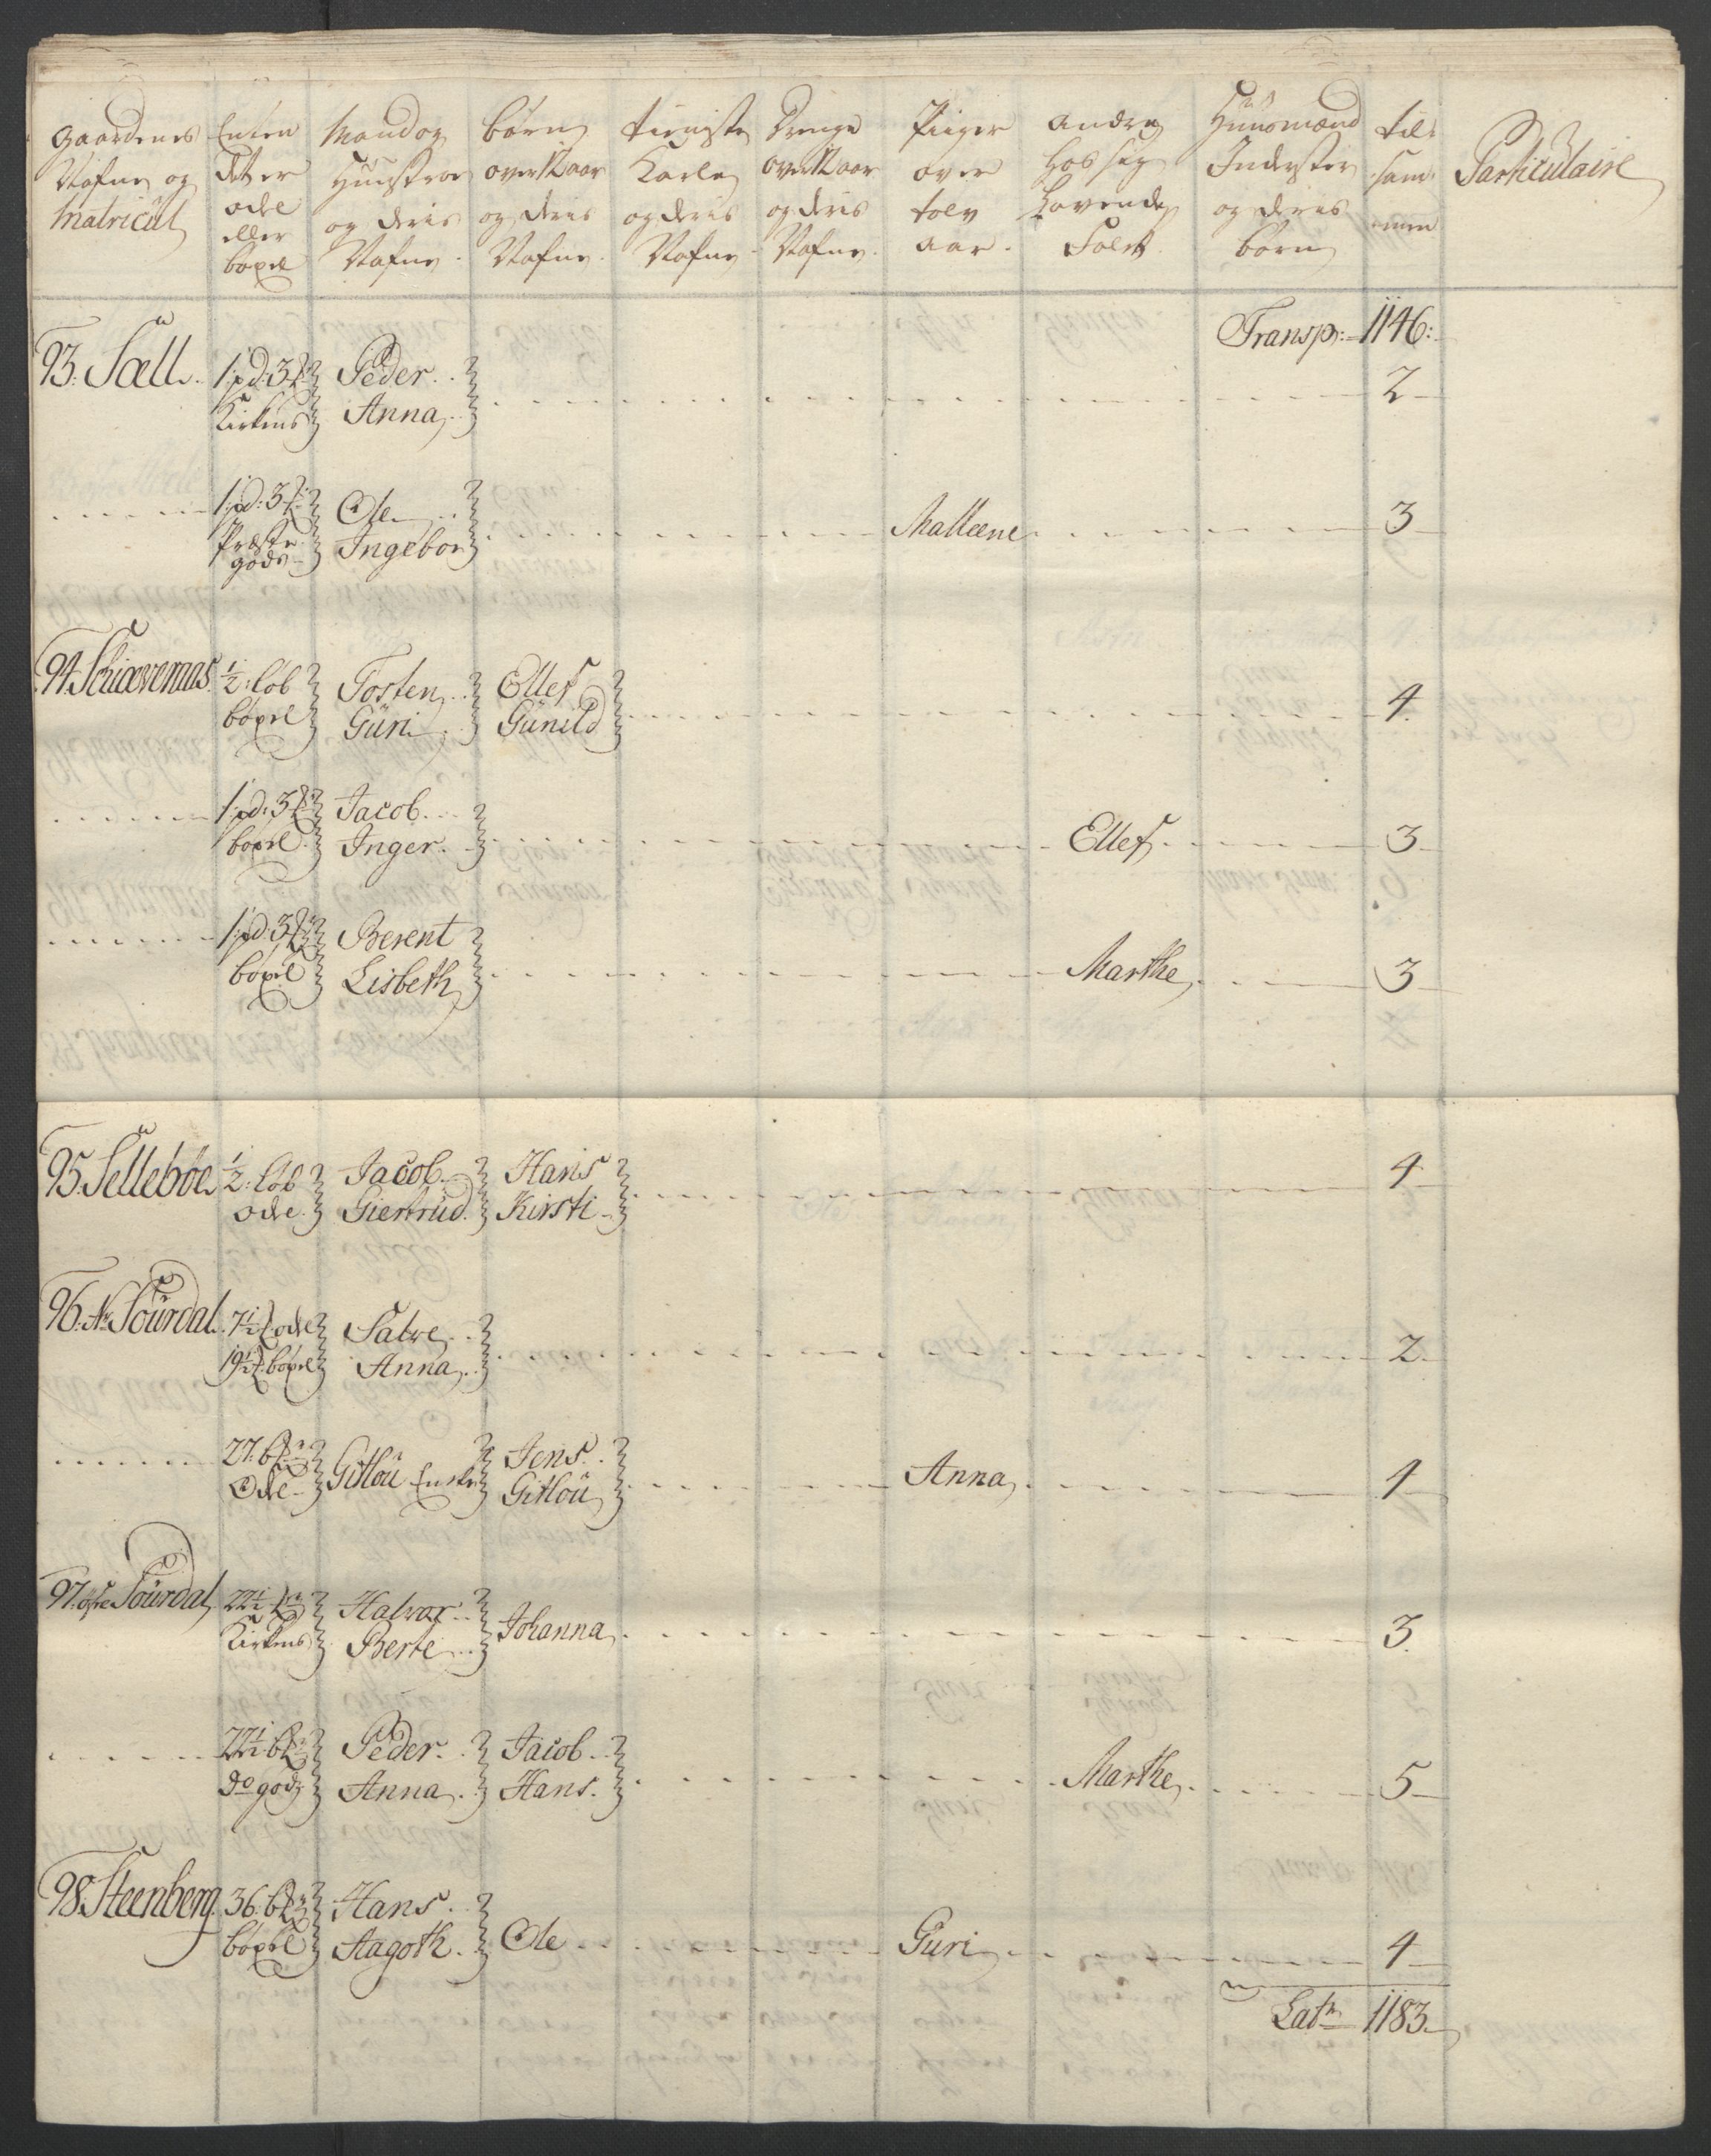 Gaardenes Nafne og Matricul
Enten det er odel eller boxel
Mand og Huustroe og deris Nafne
børn over 12 aar og deris Nafne.
tieniste Karle og deris Nafne
Drenge over 12 aar og deris Nafne.
Piiger over tolv aar.
andre hos sig havende Folck
Huusmænd Inderster og deris børn
til sam men
Particulaire
Transp: 1146:
93. Sæll. 1 pd: 3 Kirkens Peder Anna 2
1 pd: 3 Præste gods Ole Ingebor Malleene 3
94. Schiævernas. ½: løb boxel Tosten Güri Ellef Günild 4.
1 pd: 3 boxel Jacob Inger Ellef 3
1 pd: 3 boxel Berent Lisbeth Marthe 3
95. Sellebøe ½: løb odel Jacob Giertrüd Hans Kirsti 4
96. N: Soürdal. 7½ odel 19½ boxel Salve Anna 2.
27: Odel Gitloü Enke Jens Gitloü Anna 4
97. øfre Soürdal 22½ Kirkens Halvor Berte Johanna 3.
22½ do godz Peder Anna Jacob Hans Marthe 5
98. Steenberg 36: boxel Hans Aagoth Ole Guri 4
Lat 1183